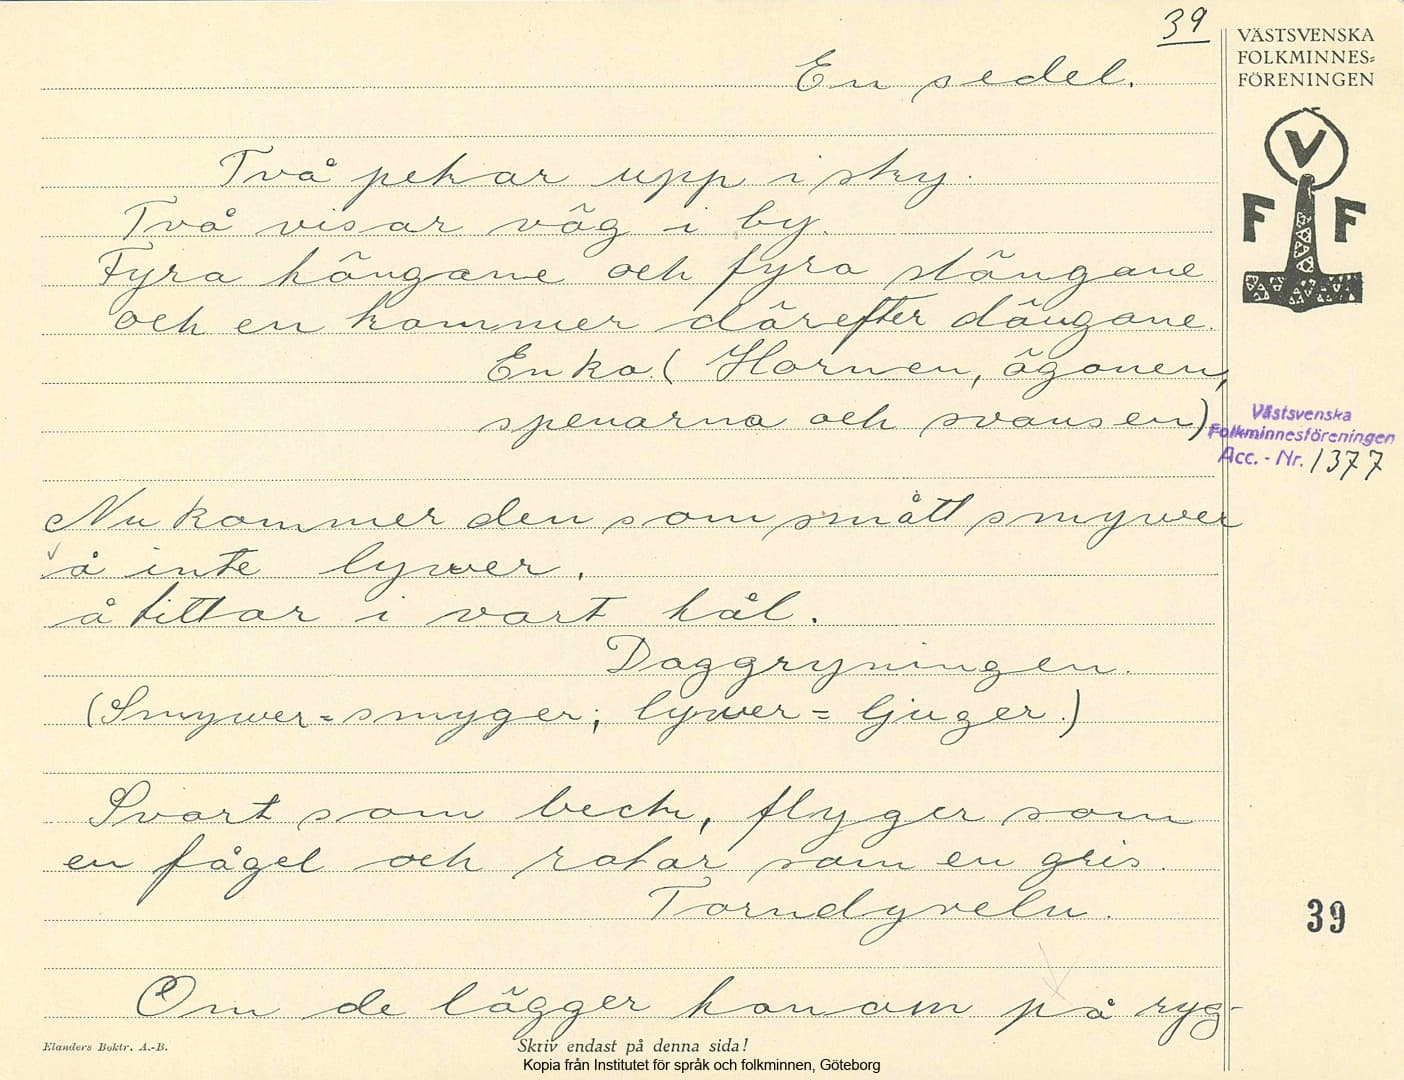 39
VÄSTSVENSKA
FOLKMINNES=
FÖRENINGEN
V
F F
En sedel.
Två pekar upp i sky.
Två visar väg i by.
Fyra hängane och fyra stängane
och en kommer därefter dängane.
En ko. (Hornen, ögonen,
spenarna och svansen)
Västsvenska
Folkminnesföreningen
Acc. - Nr. 1377
Nu kommer den som smått smywer
å inte lywer.
å tittar i vart hål.
Daggryningen.
(Smywer = smyger; lywer = ljuger.)
Svart som beck, flyger som
en fågel och rotar som en gris.
Torndyveln.
39
Om de lägger honom på ryg-
Elanders Boktr. A.-B.
Skriv endast på denna sida!
Kopia från Institutet för språk och folkminnen, Göteborg